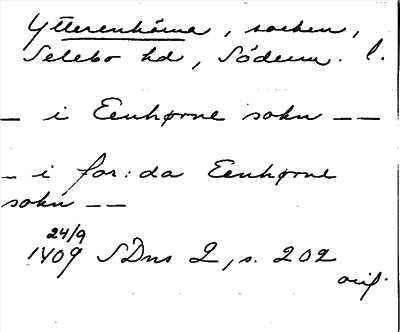 Ytterenhörna, socken,
Selebo hd, Söderm. l.
– i Eenhørne sokn – –
– i for:da Eenhørne
sokn – –
24/9
1409 SDns 2, s. 202
orig.